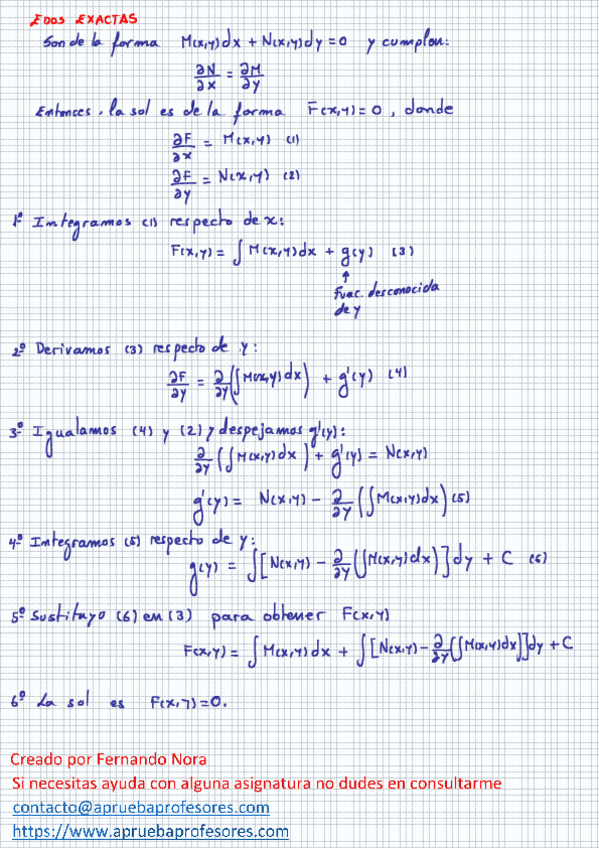 EDOS EXACTAS
Son de la forma M(x,y)dx + N(x,y)dy = 0 y cumplen:
∂N/∂x = ∂M/∂y
Entonces, la sol es de la forma F(x,y) = 0, donde
∂F/∂x = M(x,y) (1)
∂F/∂y = N(x,y) (2)
1º Integramos (1) respecto de x:
F(x,y) = ∫ M(x,y)dx + g(y) (3)
↑
Func. desconocida
de y
2º Derivamos (3) respecto de y:
∂F/∂y = ∂/∂y (∫ M(x,y)dx) + g'(y) (4)
3º Igualamos (4) y (2) y despejamos g'(y):
∂/∂y (∫ M(x,y)dx) + g'(y) = N(x,y)
g'(y) = N(x,y) - ∂/∂y (∫ M(x,y)dx) (5)
4º Integramos (5) respecto de y:
g(y) = ∫ [N(x,y) - ∂/∂y (∫ M(x,y)dx)] dy + C (6)
5º Sustituyo (6) en (3) para obtener F(x,y)
F(x,y) = ∫ M(x,y)dx + ∫ [N(x,y) - ∂/∂y (∫ M(x,y)dx)] dy + C
6º La sol es F(x,y) = 0.
Creado por Fernando Nora
Si necesitas ayuda con alguna asignatura no dudes en consultarme
contacto@apruebaprofesores.com
https://www.apruebaprofesores.com